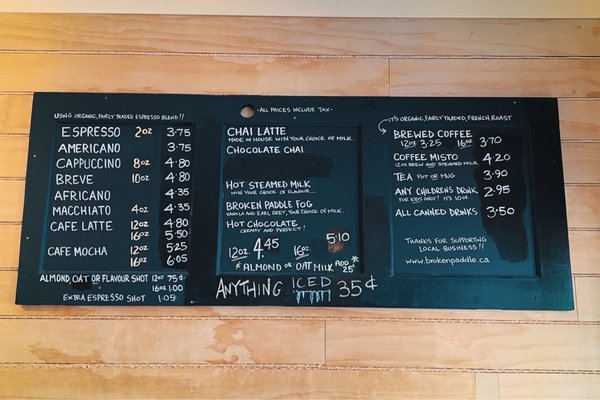 USING ORGANIC, FAIRLY TRADED ESPRESSO BLEND!
ESPRESSO 2oz 3.75
AMERICANO 3.75
CAPPUCCINO 8oz 4.80
BREVE 10oz 4.80
AFRICANO 4.35
MACCHIATO 4oz 4.35
CAFE LATTE 12oz 4.80
16oz 5.50
CAFE MOCHA 12oz 5.25
16oz 6.05
ALMOND, OAT OR FLAVOUR SHOT 12oz 75¢
16oz 1.00
EXTRA ESPRESSO SHOT 1.05
-ALL PRICES INCLUDE TAX-
CHAI LATTE
MADE IN HOUSE WITH YOUR CHOICE OF MILK.
CHOCOLATE CHAI
HOT STEAMED MILK
WITH YOUR CHOICE OF FLAVOUR...
BROKEN PADDLE FOG
VANILLA AND EARL GREY, YOUR CHOICE OF MILK.
HOT CHOCOLATE
CREAMY AND PERFECT!
12oz 4.45 16oz 5.10
* ALMOND OR OAT MILK ADD 25¢ *
ANYTHING ICED 35¢
IT'S ORGANIC, FAIRLY TRADED, FRENCH ROAST
BREWED COFFEE
12oz 3.25 16oz 3.70
COFFEE MISTO 4.20
12OZ BREW AND STEAMED MILK
TEA POT OR MUG 3.90
ANY CHILDRENS DRINK 2.95
FOR KIDS ONLY! IT'S 10oz
ALL CANNED DRINKS 3.50
THANKS FOR SUPPORTING
LOCAL BUSINESS!!
www.brokenpaddle.ca